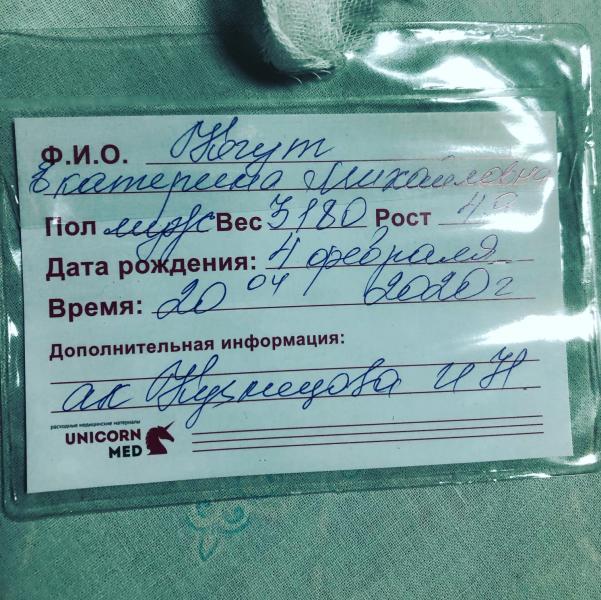 Ф.И.О. Когут
Екатерина Михайловна
Пол муж Вес 3180 Рост 49
Дата рождения: 4 февраля
Время: 20 04 2020 г
Дополнительная информация:
ак Кузнецова И Н.
расходные медицинские материалы
UNICORN
MED